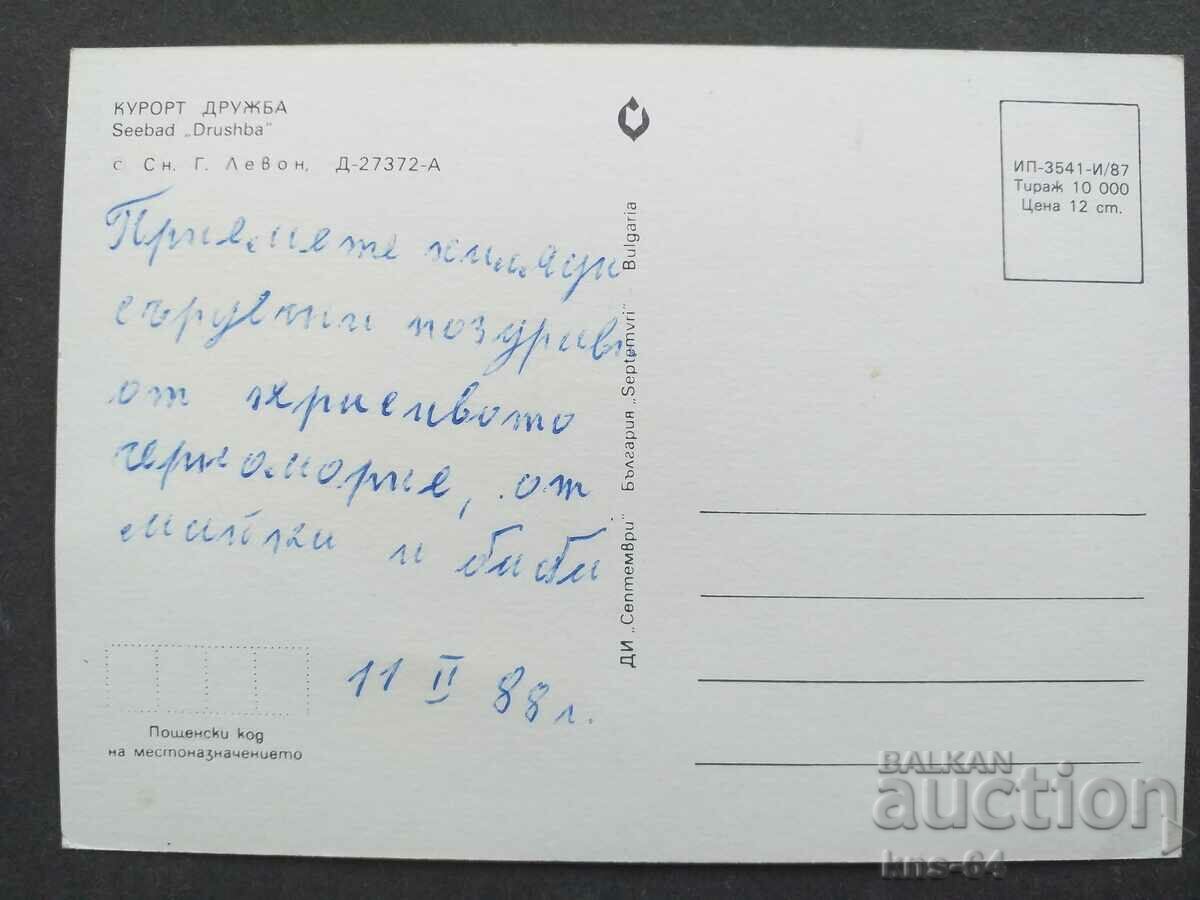 КУРОРТ ДРУЖБА
Seebad „Drushba"
с Сн. Г. Левон, Д-27372-А
Приемете хиляди
сърдечни поздрави
от
черноморие, от
майка и баби
11 II 88 г.
Пощенски код
на местоназначението
ДИ „Септември" България „Septemvri" Bulgaria
ИП-3541-И/87
Тираж 10 000
Цена 12 ст.
BALKAN
auction
kns-64